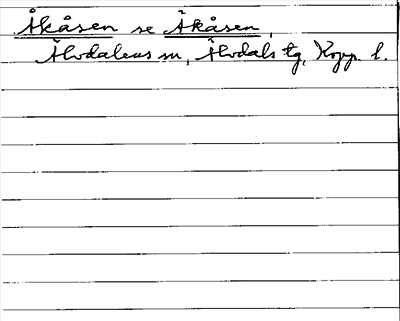 Åkåsen se Åkåsen,
Älvdalens sn, Älvdals tg, Kopp. l.